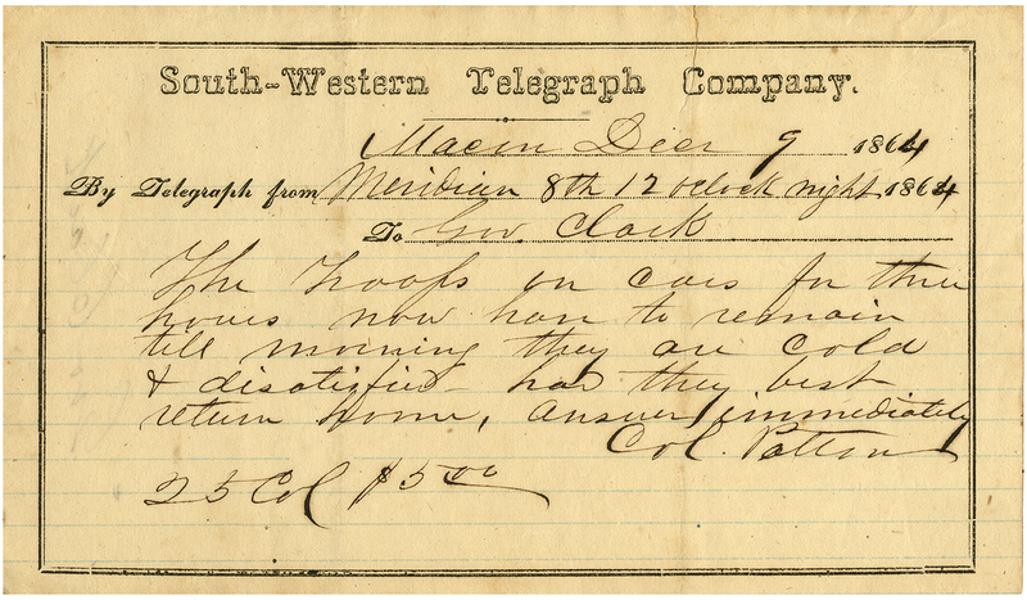 South-Western Telegraph Company.
Macon Decr 9 1864
By Telegraph from Meridian 8th 12 oclock night 1864
To Gov. Clark
The troops on cars for three
hours now have to remain
till morning they are cold
& disatisfied - had they best
return home, answer immediately
Col. Patton
25 Col $5 00